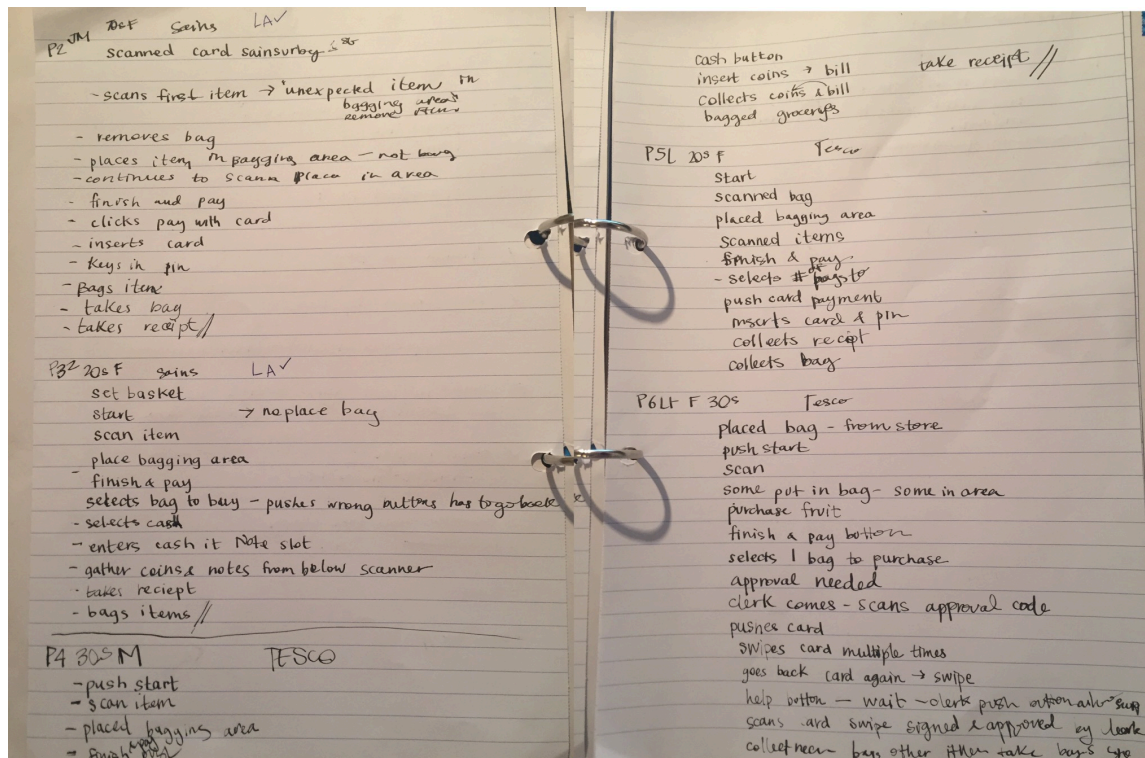 20s F Sains LA✓
P2 JM
scanned card sainsurbys
- scans first item → "unexpected item in
bagging area"
remove item
- removes bag
- places item in bagging area - not bag
- continues to scann place in area
- finish and pay
- clicks pay with card
- inserts card
- Keys in pin
- Bags item
- takes bag
- takes receipt //
P32 20s F Sains LA✓
set basket
start → no place bag
scan item
place bagging area
- finish & pay
selects bag to buy - pushes wrong buttons has to go back
- selects cash
- enters cash it Note slot
- gather coins & notes from below scanner
- takes reciept
- bags items //
P4 30s M TESCO
- push start
- scan item
- placed bagging area
- finish & pay
cash button
insert coins → bill take receipt //
Collects coins & bill
bagged groceries
P5L 20s F Tesco
Start
scanned bag
placed bagging area
scanned items
finish & pay
- selects # of bags to
push card payment
inserts card & pin
collects receipt
collects bag
P6LT F 30s Tesco
placed bag - from store
push start
scan
some put in bag - some in area
purchase fruit
finish & pay button
selects 1 bag to purchase
approval needed
clerk comes - scans approval code
pushes card
swipes card multiple times
goes back card again → swipe
help button - wait - clerk push
scans card swipe signed & approved by
collect bag other take bags